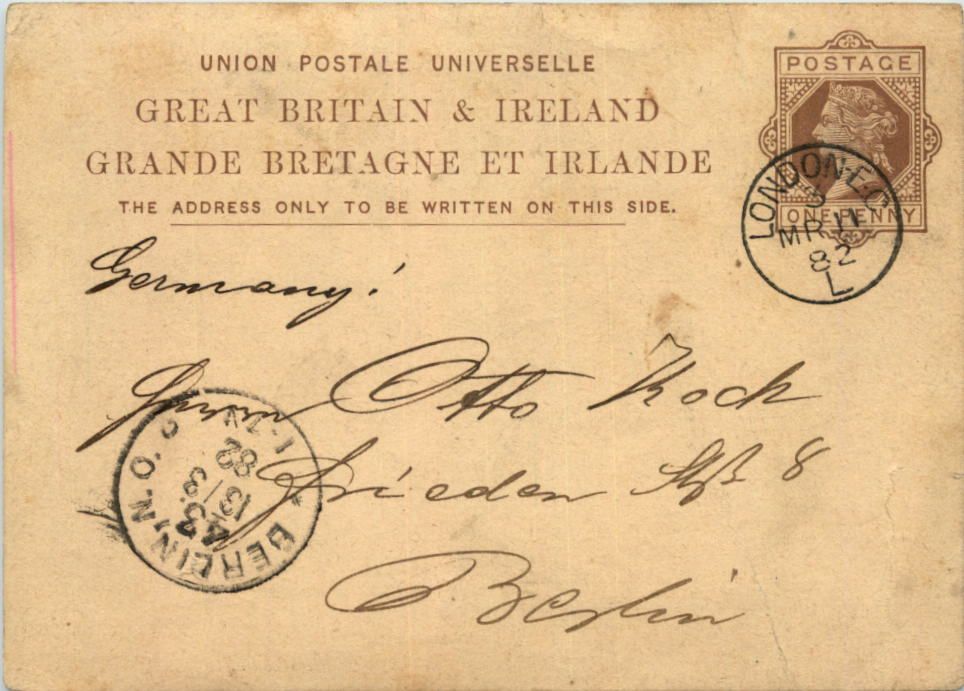 UNION POSTALE UNIVERSELLE
GREAT BRITAIN & IRELAND
GRANDE BRETAGNE ET IRLANDE
THE ADDRESS ONLY TO BE WRITTEN ON THIS SIDE.
POSTAGE
ONE PENNY
LONDON·E·C
MR 11
82
L
Germany!
Herrn Otto Koch
Frieden Str 8
Berlin
BERLIN, N.O.
43
13/3
82